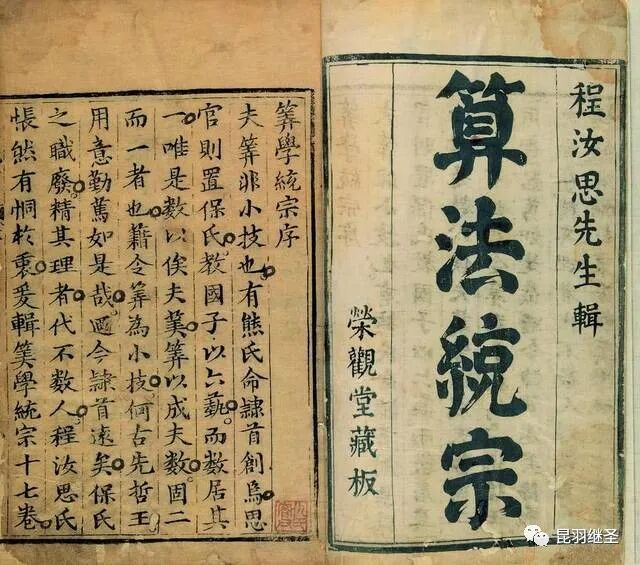 程汝思先生輯
算法統宗
榮觀堂藏板
算學統宗序
夫算非小技也有熊氏命隸首創為思
官則置保氏教國子以六藝而數居其
一唯是數以俟夫算以成夫數固二
而一者也藉令算為小技何古先哲王
用意勤篤如是哉迺今隸首遠矣保氏
之職廢精其理者代不數人程汝思氏
悵然有恫於衷爰輯算學統宗十七卷
昆羽继圣